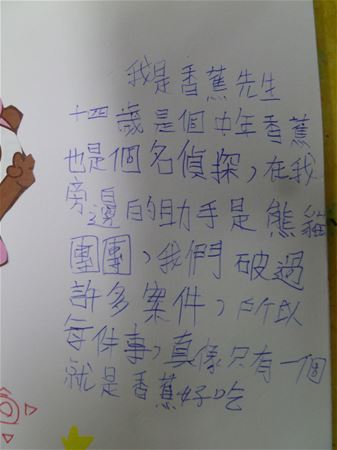 我是香蕉先生
十四歲是個中年香蕉
也是個名偵探，在我
旁邊的助手是熊貓
團團，我們破過
許多案件，所以
每件事，真像只有一個
就是香蕉好吃